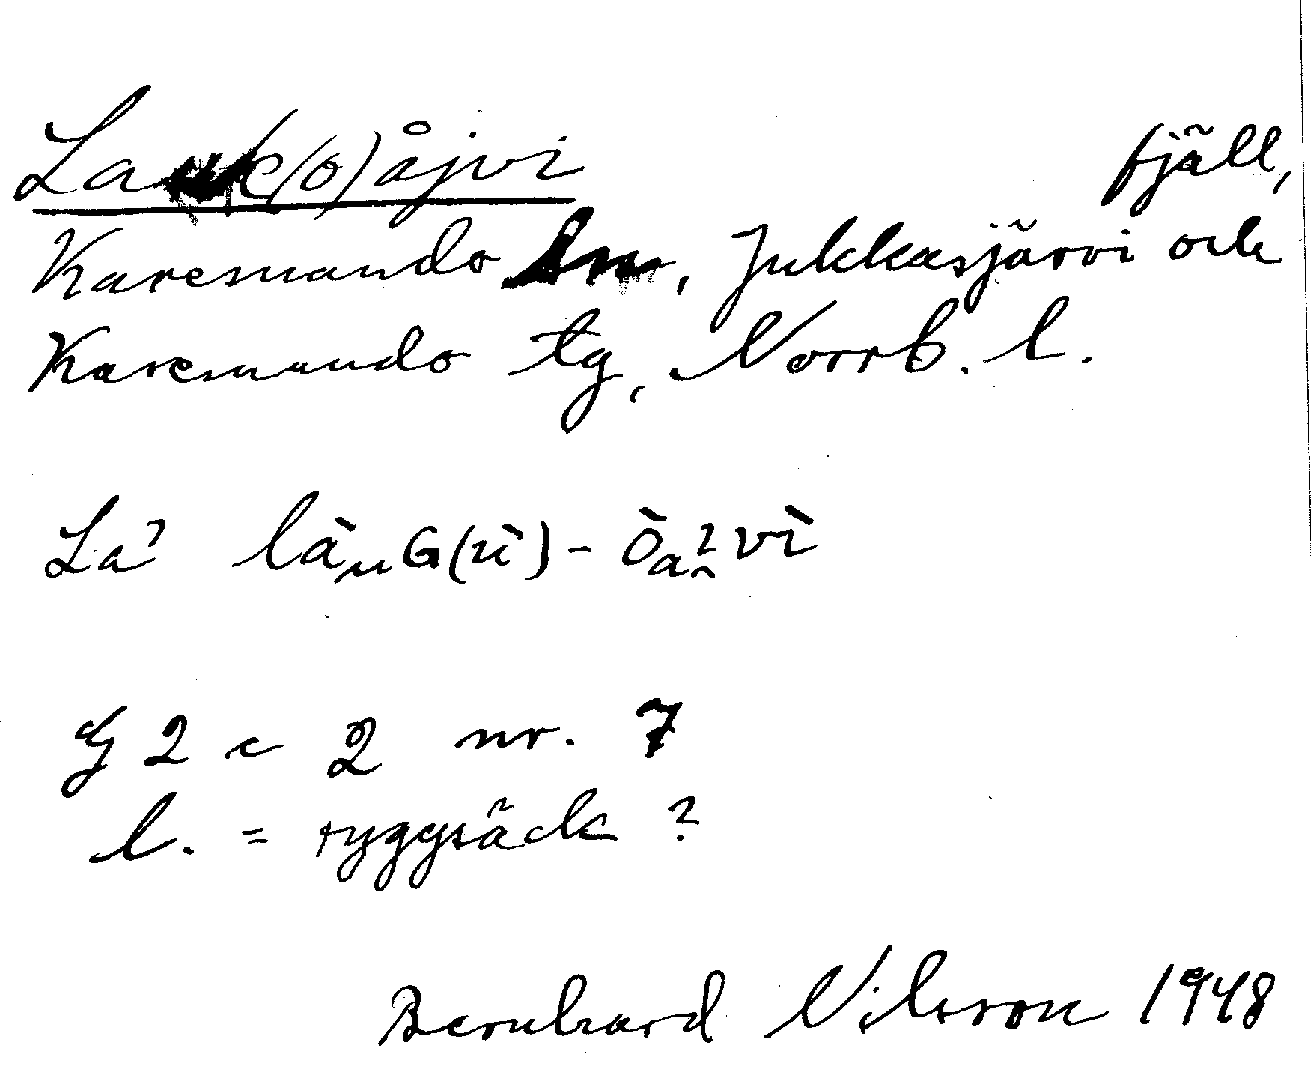 Lauk(o)åjvi fjäll,
Karesuando sn, Jukkasjärvi och
Karesuando tg, Norrb. l.
La'
G 2 c 2 nr. 7
l. = ryggsäck ?
Bernhard Nilsson 1948